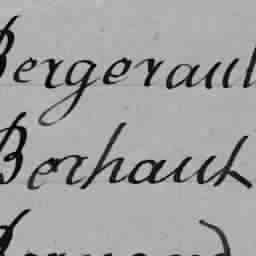 Bergerault
Berhault